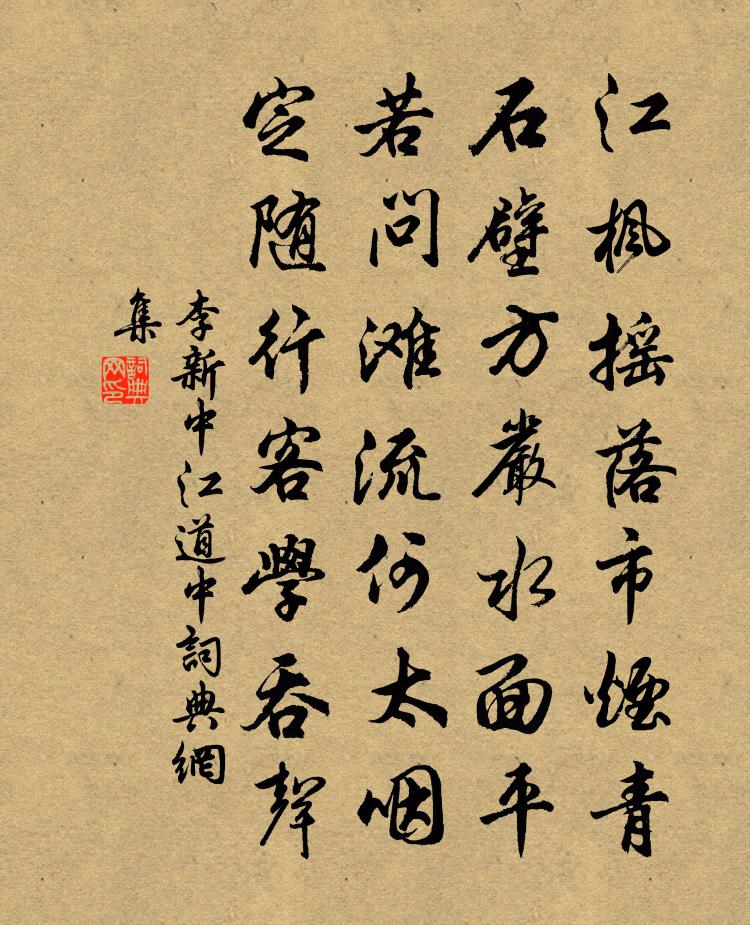 江枫摇落市烟青
石壁方嚴水面平
若问滩流何太咽
定随行客學吞聲
李新中江道中詞典網
集
詞典網印